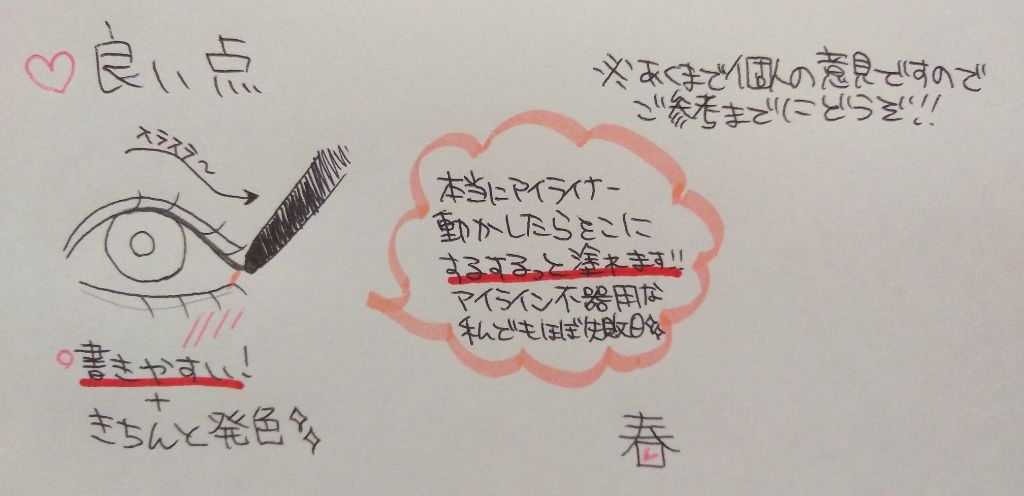 良い点
※あくまで個人の意見ですので
ご参考までにどうぞ!!
スラスラ～
本当にアイライナー
動かしたらそこに
するするっと塗れます!!
アイライン不器用な
私でもほぼ失敗0
書きやすい!
+
きちんと発色
春